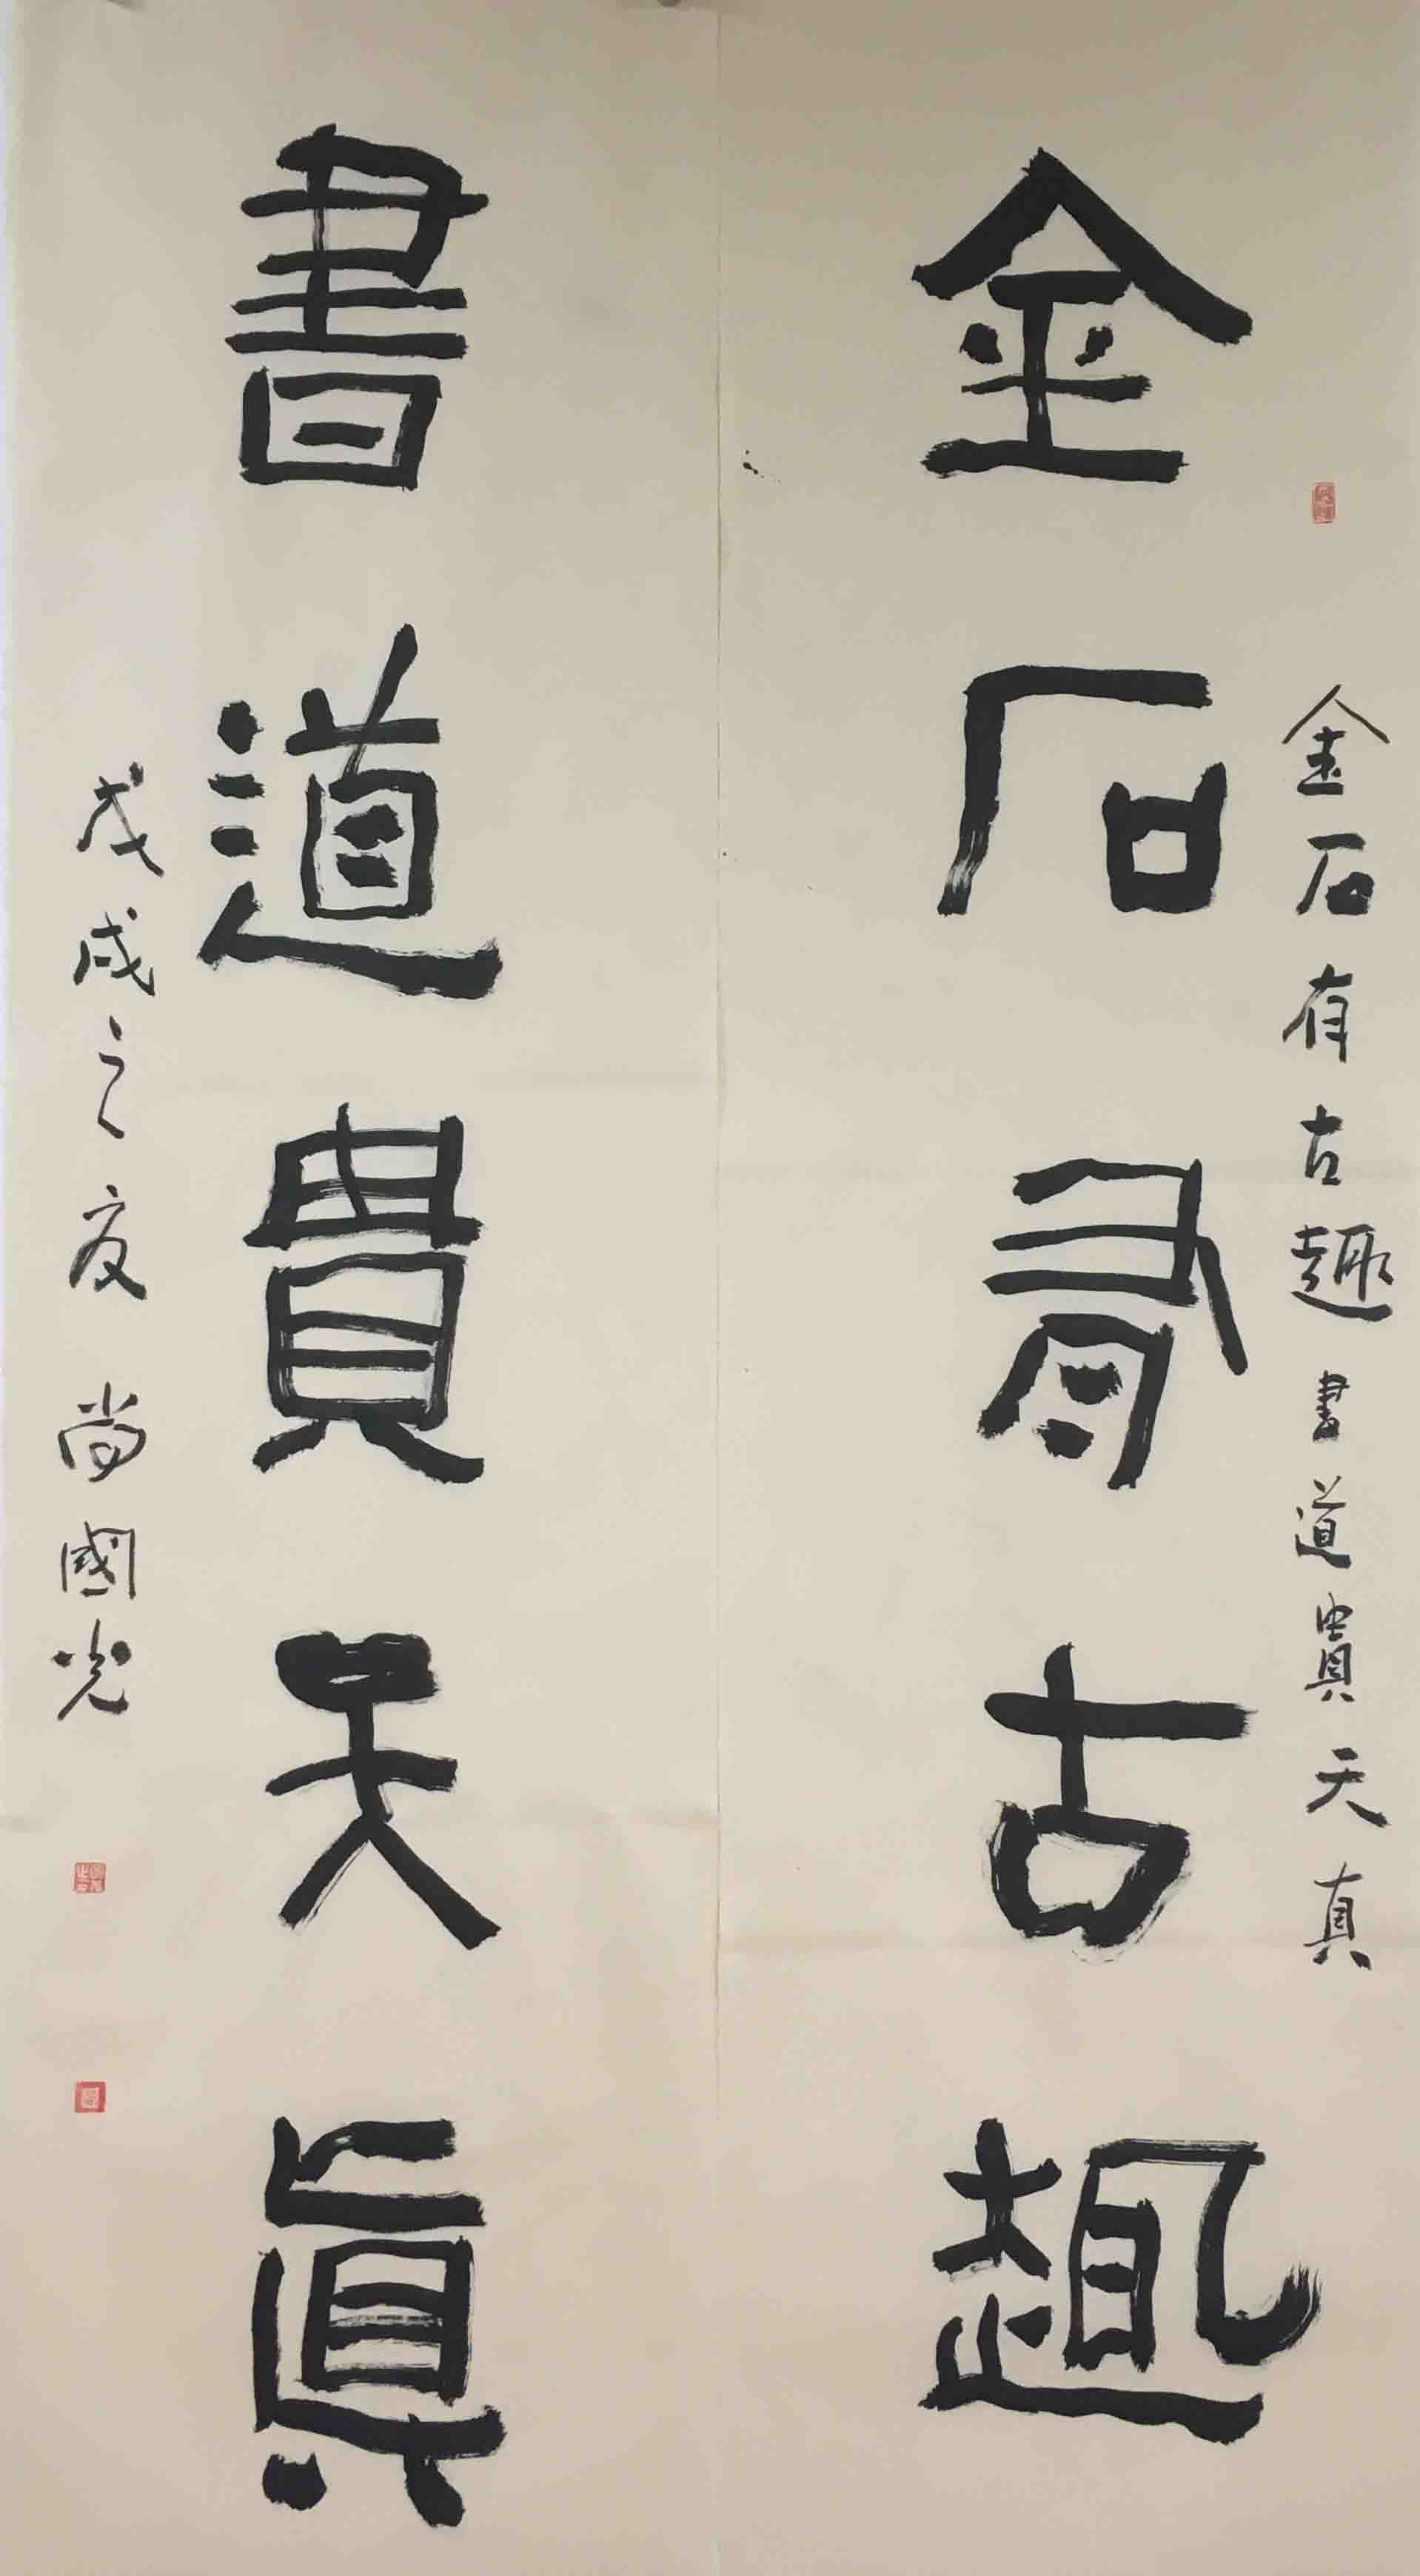 金石有古趣書道貴天真
金石有古趣
書道貴天真
戊戌之夜尚國光